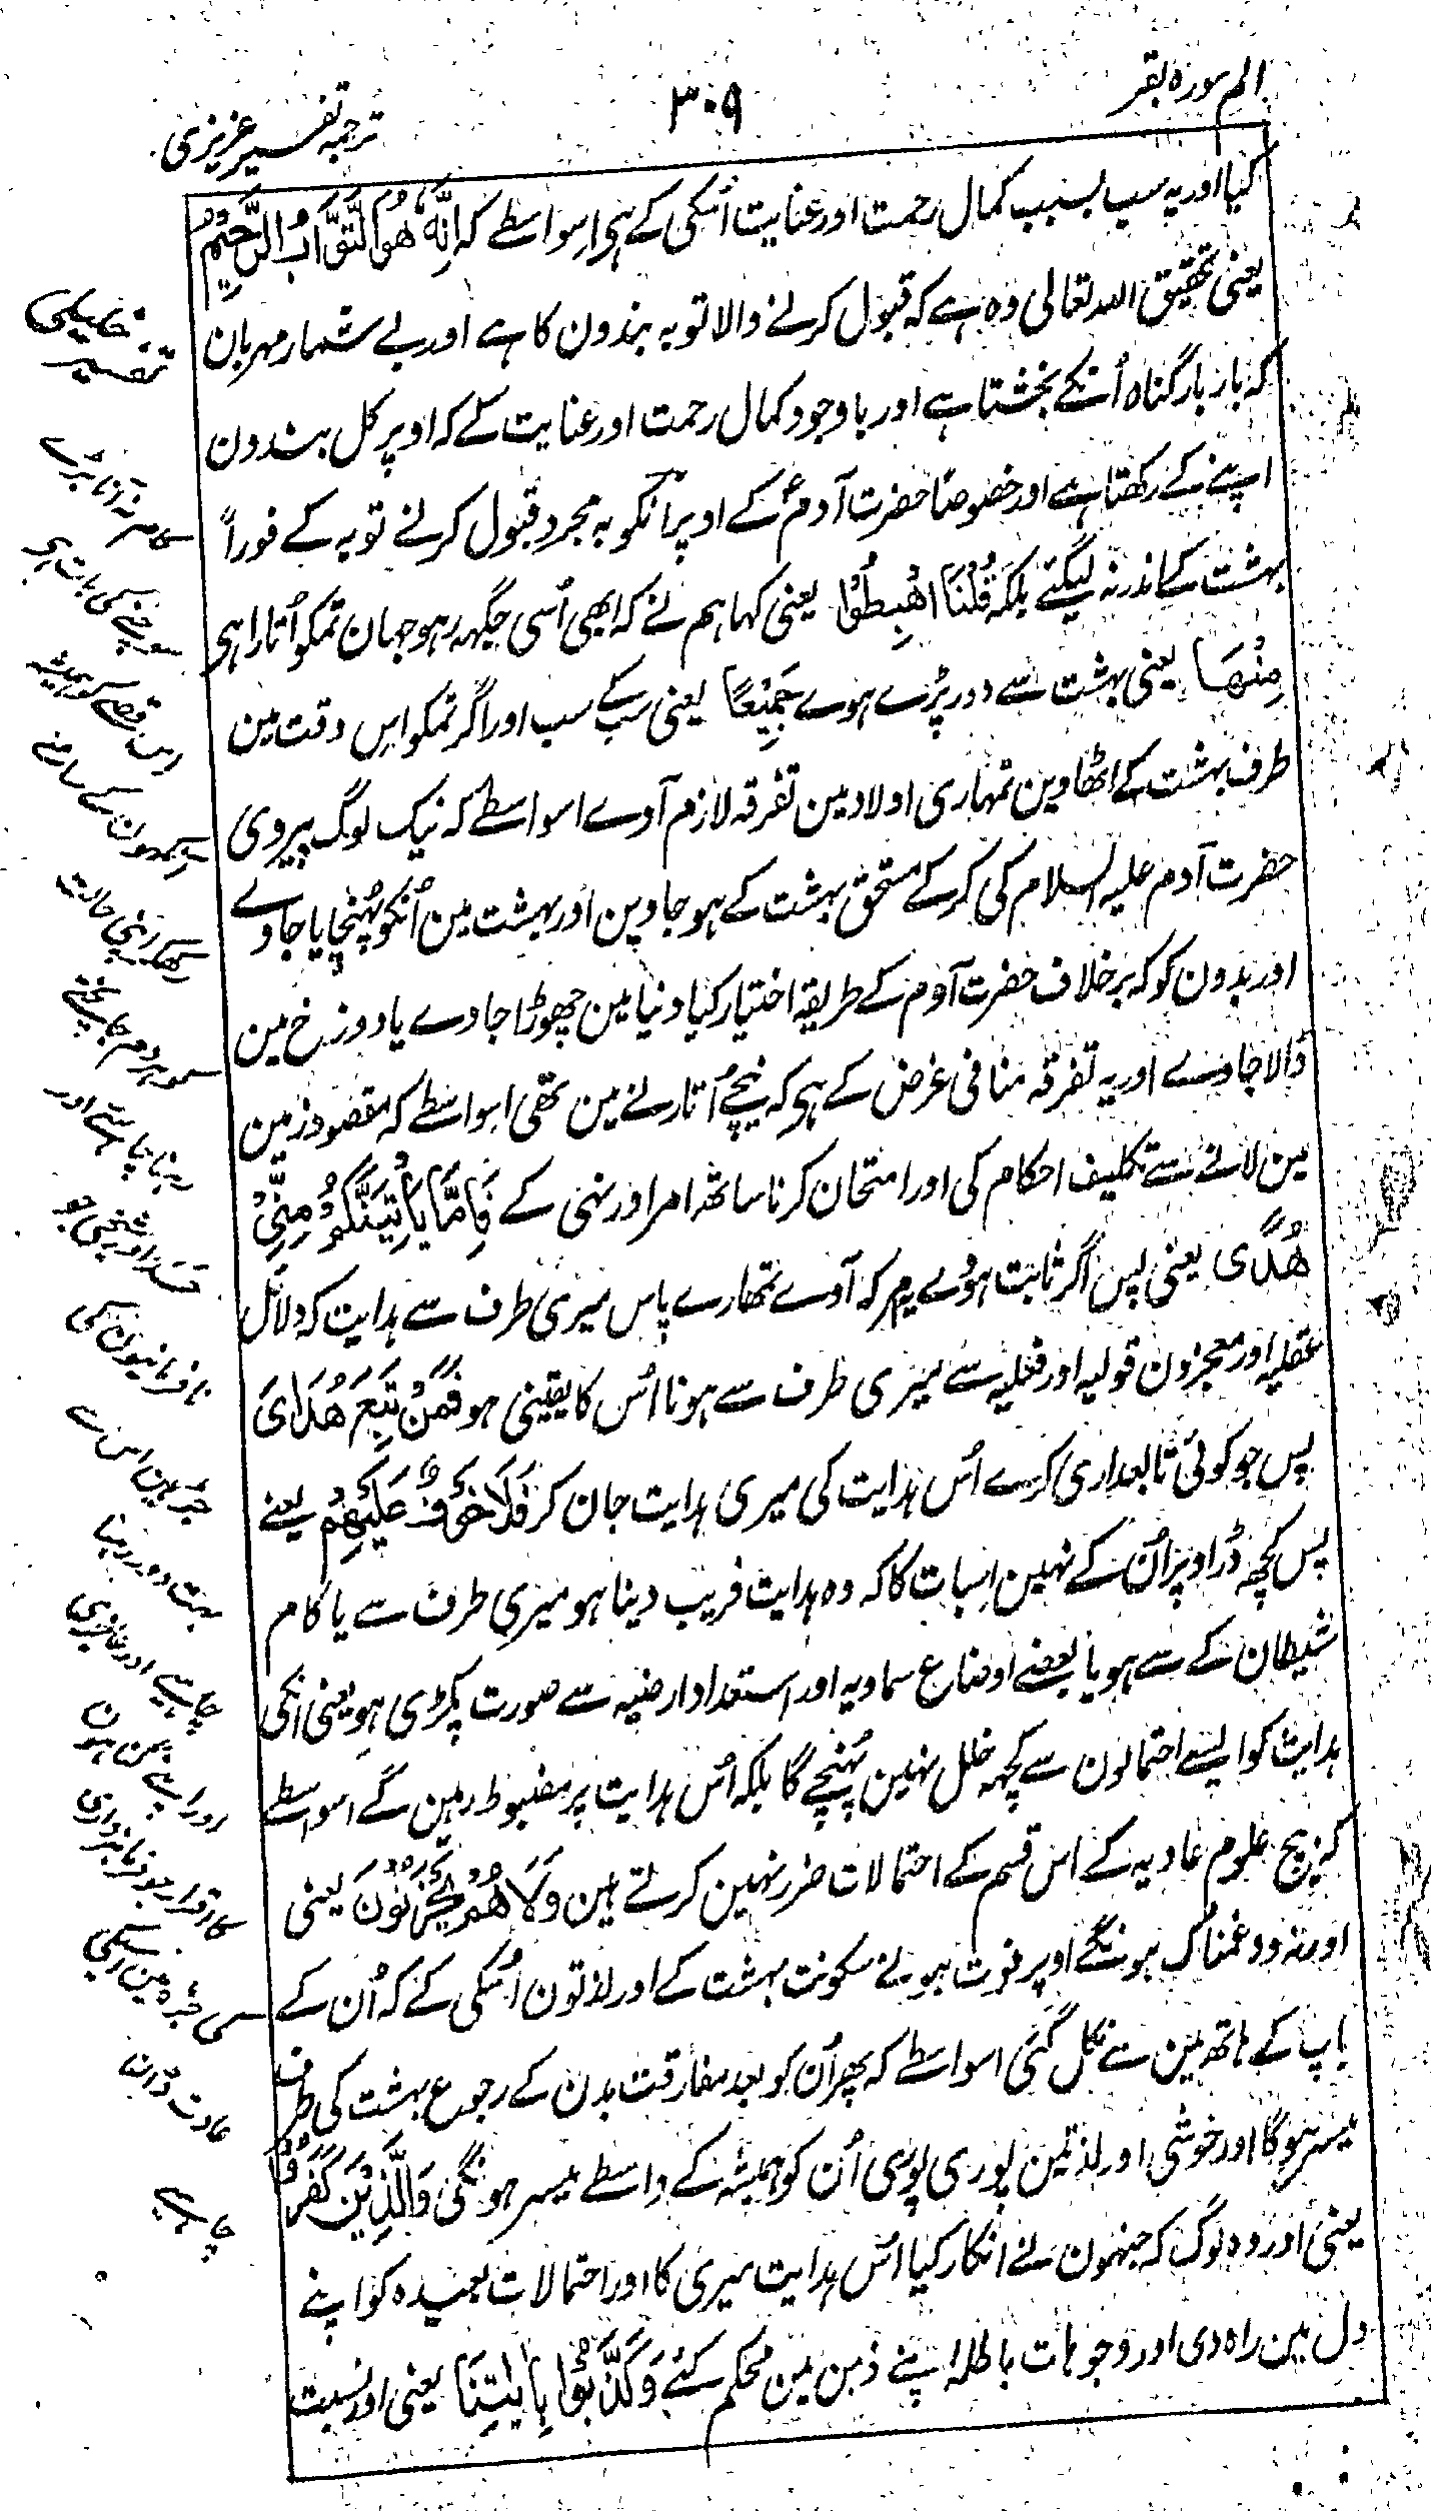 الم سورہ بقر
۳۰۹
ترجمہ تفسیر عزیزی
کیا اور یہ سب بسبب کمال رحمت اور عنایت اُسکی کے ہی اسواسطے کہ اِنَّهٗ هُوَ التَّوَّابُ الرَّحِيْمُ
یعنی تحقیق اللہ تعالی وہ ہے کہ قبول کرنے والا توبہ بندون کا ہے اور بے شمار مہربان
کہ بار بار گناہ اُنکے بخشتا ہے اور باوجود کمال رحمت اور عنایت کے کہ اوپر کل بندون
اپنے کے رکھتا ہے اور خصوصًا حضرت آدمؑ کے اوپر اُنکو بہ مجرد قبول کرنے توبہ کے فوراً
بہشت کے اندر نہ لیگئے بلکہ قُلْنَا اهْبِطُوْا یعنی کہا ہم نے کہ ابھی اُسی جگہہ رہو جہان تمکو اُتارا ہی
مِنْهَا یعنی بہشت سے دور پڑے ہوے جَمِيْعًا یعنی سب کے سب اور اگر تمکو اس وقت مین
طرف بہشت کے اٹھاوین تمہاری اولاد مین تفرقہ لازم آوے اسواسطے کہ نیک لوگ پیروی
حضرت آدم علیہ السلام کی کر کے مستحق بہشت کے ہو جاوین اور بہشت مین اُنکو پُہنچایا جاوے
اور بدون کو کہ برخلاف حضرت آدم کے طریقہ اختیار کیا دنیا مین چھوڑا جاوے یا دوزخ مین
ڈالا جاوے اور یہ تفرقہ منافی غرض کے ہی کہ نیچے اُتارنے مین تھی اسواسطے کہ مقصود زمین
مین لانے سے تکلیف احکام کی اور امتحان کرنا ساتھ امر اور نہی کے فَاِمَّا يَاْتِيَنَّكُمْ مِنِّيْ
هُدًى یعنی پس اگر ثابت ہوے یہ امر کہ آوے تمھارے پاس میری طرف سے ہدایت کہ دلائل
عقلیہ اور معجزون قولیہ اور فعلیہ سے میری طرف سے ہونا اُس کا یقینی ہو فَمَنْ تَبِعَ هُدَايَ
پس جو کوئی تابعداری کرے اُس ہدایت کی میری ہدایت جان کر فَلَا خَوْفٌ عَلَيْهِمْ یعنے
پس کچھہ ڈر اوپر اُن کے نہین اسبات کا کہ وہ ہدایت فریب دینا ہو میری طرف سے یا کام
شیطان کے سے ہو یا بعضے اوضاع سماویہ اور استعداد ارضیہ سے صورت پکڑی ہو یعنی انکی
ہدایت کو ایسے احتمالون سے کچھہ خلل نہین پُہنچے گا بلکہ اُس ہدایت پر مضبوط رہین گے اسواسطے
کہ بیچ علوم عادیہ کے اس قسم کے احتمالات ضرر نہین کرتے ہین وَلَا هُمْ يَحْزَنُوْنَ یعنی
اور نہ وہ غمناک ہونگے اوپر فوت ہونے سکونت بہشت کے اور لذتون اُسکی کے کہ اُن کے
باپ کے ہاتھہ مین سے نکل گئی اسواسطے کہ پھر اُن کو بعد مفارقت بدن کے رجوع بہشت کی طرف
میسر ہوگا اور خوشی اور لذتین پوری پوری اُن کو ہمیشہ کے واسطے میسر ہونگی وَالَّذِيْنَ كَفَرُوْا
یعنی اور وہ لوگ کہ جنہون نے انکار کیا اُس ہدایت میری کا اور احتمالات بعیدہ کو اپنے
دل مین راہ دی اور وجوہات باطلہ اپنے ذہن مین محکم کئے وَكَذَّبُوْا بِاٰيٰتِنَا یعنی اور نسبت
تفسیر خلیلی
کا سر نہ آنا پڑے
سوچنے کی بات ہی
اس قصے کو ہمیشہ
آنکھون کے سامنے
رکھکر اپنی حالت
سے ہر دم جانچتے
رہنا چاہئے اور
حسد اور شیخی جو
نافرمانیون کی
جڑ ہین ان سے
بہت دور رہنا
چاہیے اور عاجزی
اور اپنے مین ہون
کا اقرار جو فرمانبرداری
کی جڑ ہین اسکی
عادت ڈالنا
چاہیے